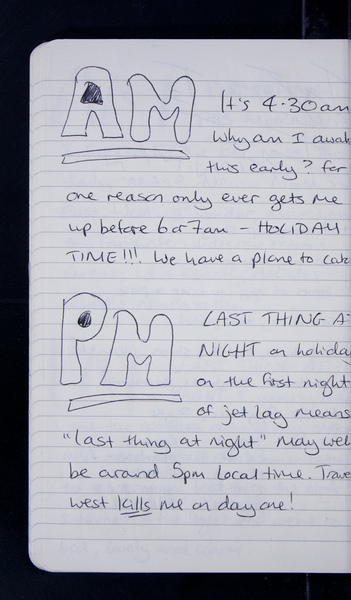 AM
It's 4.30am
Why am I awak
this early? for
one reason only ever gets me
up before 6 or 7am - HOLIDAY
TIME!!! We have a plane to catc
PM
LAST THING A
NIGHT on holiday
on the first night
of jet lag means
"last thing at night" may well
be around 5pm local time. Trave
west kills me on day one!